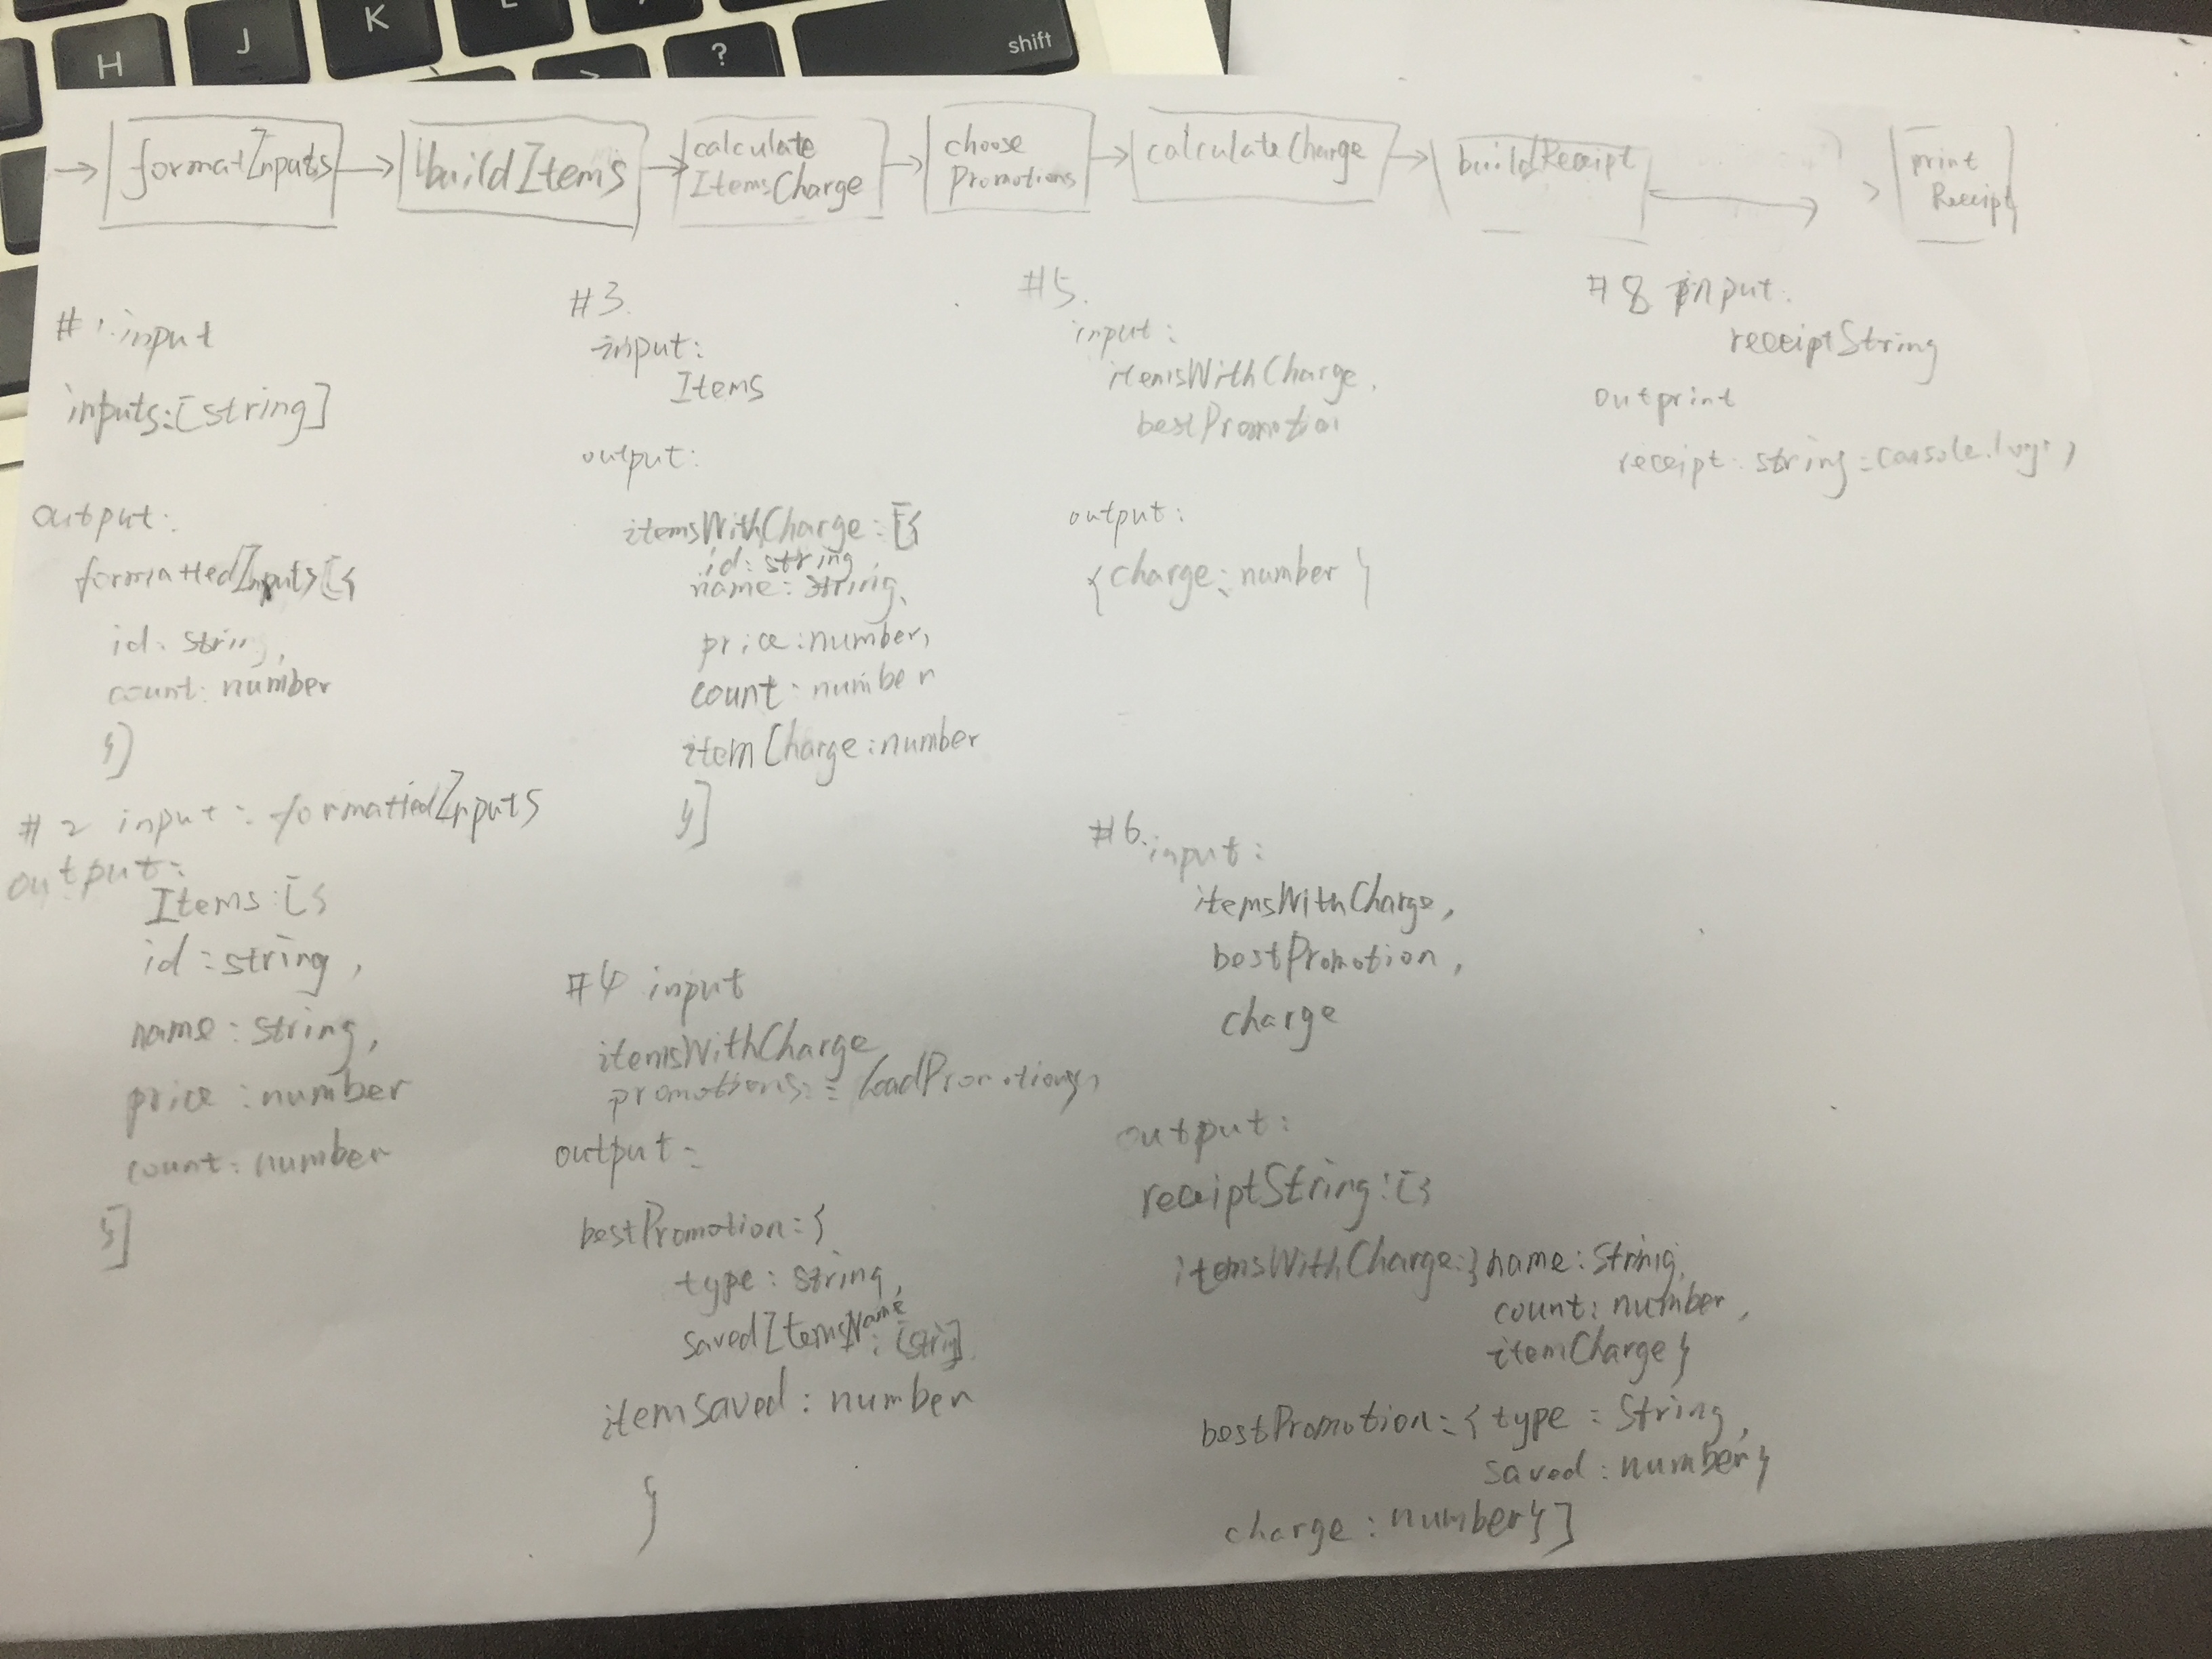 → formatInputs → buildItems → calculate ItemsCharge → choose Promotions → calculateCharge → buildReceipt → print Receipt
#1. input
inputs:[string]
output:
formattedInputs[{
id: string,
count: number
}]
#2 input: formattedInputs
output:
Items:[{
id:string,
name:string,
price:number
count:number
}]
#3.
input:
Items
output:
itemsWithCharge:[{
id:string
name:string,
price:number,
count:number
itemCharge:number
}]
input
itemsWithCharge
promotions: = loadPromotions,
output:
bestPromotion:{
type:string,
savedItemsName:
itemSaved:number
}
#5.
input:
itemsWithCharge,
bestPromotion
output:
{charge:number}
#6.input:
itemsWithCharge,
bestPromotion,
charge
output:
receiptString:[{
itemsWithCharge:{name:String
count:number,
itemCharge}
bestPromotion:{type:String,
saved:number}
charge:number}]
#8 input:
receiptString
outprint
receipt:string
H
J
K
L
>
?
shift